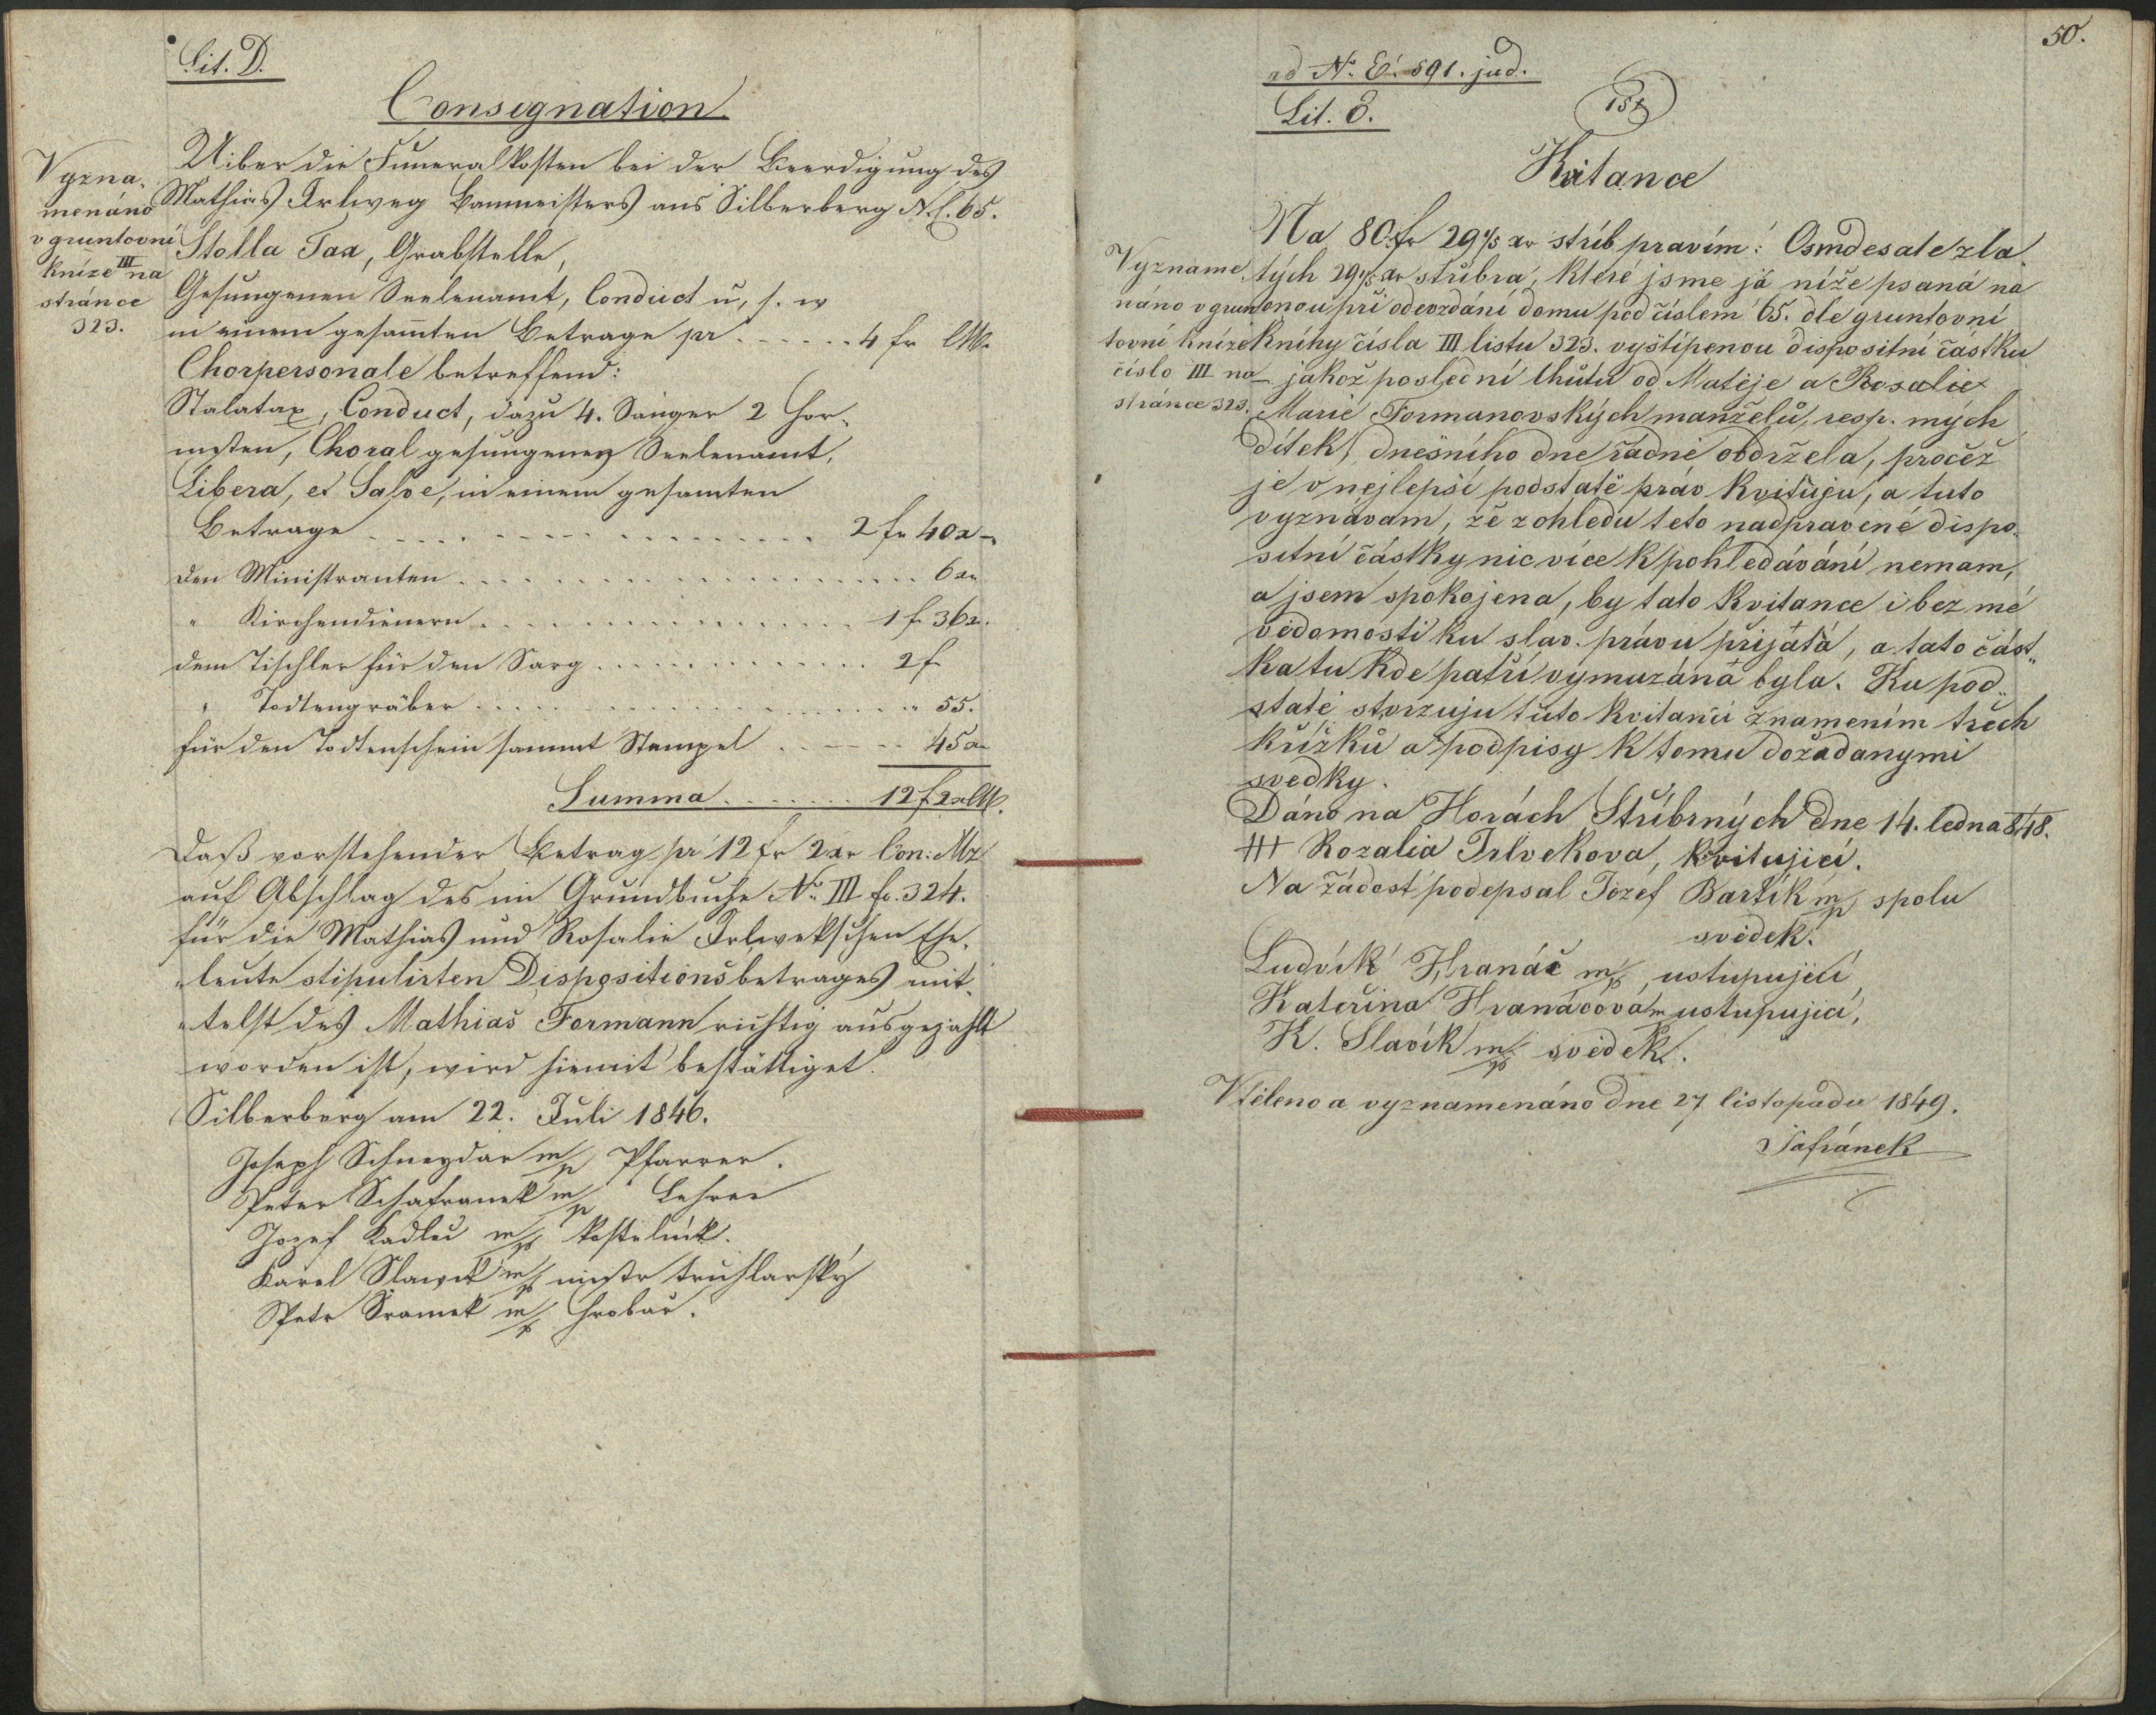 Lit. D.
Consegnation
Uiber die Funeralkosten bei der Beerdigung des
Mathias Irlweg Baumeisters aus Silberberg N. C. 65.
Vyzna-
menáno
v gruntovní
knize III na
stránce
323.
Stolla Tax, Grabstelle,
Gesungenen Seelenamt, Conduct u, s. w
in einem gesam̄ten Betrage pr . . . . . . 4 fr CM.
Chorpersonale betreffend:
Stalatax, Conduct, dazu 4. Sänger 2 Hor-
nisten, Choral gesungenes Seelenamt,
Libera, et Salve, in einem gesamten
Betrage . . . . . . . . . . 2 fr 40 x
den Ministranten . . . . . . . . . . 6 xr
" Kirchendienern . . . . . . . . . . 1 f 36 x.
dem Tischler für den Sarg . . . . . . . . . . 2 f
" Todtengräber . . . . . . . . . . " 55.
für den Todtenschein sammt Stempel . . . . . . 45 xr
Summa . . . . . . . 12 f 2 xr CM.
Daß vorstehender Betrag pr 12 fr 2 xr Con: Mz
auf Abschlag des im Grundbuche No. III fo. 324.
für die Mathias und Rosalie Irlwekschen Ehe-
"leute stipulirten Dispositionsbetrages mit-
"telst des Mathias Formann richtig ausgezahlt
worden ist, wird hiemit bestättiget.
Silberberg am 22. Juli 1846.
Joseph Schneydar m/p Pfarrer.
Peter Schafranek m/p Lehrer
Jozef Kadlec m/p kostelnik.
Karel Slawik m/p mistr truhlarský
Petr Sramek m/p hrobar.
50.
ad No. E. 591. jud.
Lit. E.
157
Kvitance
Na 80 fr 29 4/5 xr stříb. pravím: Osmdesate zla
tých 29 4/5 xr stříbra, které jsme já níže psaná na
onou při odevzdání domu pod číslem 65. dle gruntovní
Knihy čísla III listu 323. vyštípenou dispositní částku
jakož poslední lhůtu od Matěje a Rosalie
Marie Formanovských manželů, resp. mých
dítek, dnešního dne řádně obdržela, pročež
je v nejlepší podstatě práv kvituju, a tuto
vyznávám, že z ohledu teto nadpravené dispo-
sitní částky nic více k pohledávání nemam,
a jsem spokojena, by tato kvitance i bez mé
vědomosti ku sláv. právu přijatá, a tato část"
ka tu kde patří vymazána byla. Ku pod"
statě stvrzuju tuto kvitanci znamením třech
křížků a podpisy k tomu dožádanymi
svedky.
Význame
náno v grun
tovní knize
číslo III na
stránce 323.
Dáno na Horách Stříbrných dne 14. ledna 848.
+++ Rozalia Irlvekova, kvitující.
Na žádost podepsal Jozef Bartík m/p spolu
svědek.
Ludvík Hranáč m/p, ustupující,
Kateřina Hranáčová m ustupující,
K. Slavík m/p svědek.
Vtěleno a vyznamenáno dne 27 listopadu 1849.
Šafránek